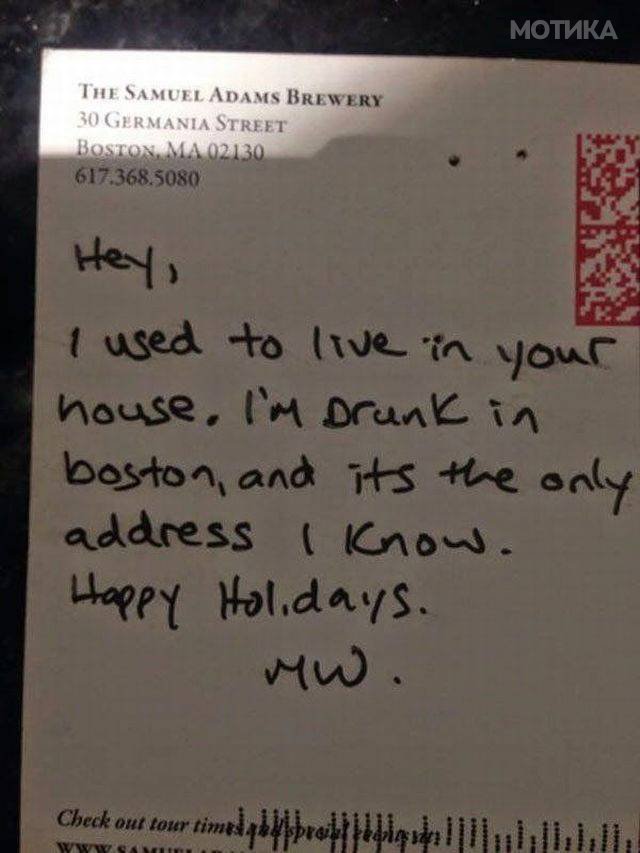 МОТИКА
THE SAMUEL ADAMS BREWERY
30 GERMANIA STREET
BOSTON, MA 02130
617.368.5080
Hey,
I used to live in your
house. I'm Drunk in
boston, and its the only
address I know.
Happy Holidays.
MW.
Check out tour times and special events at: